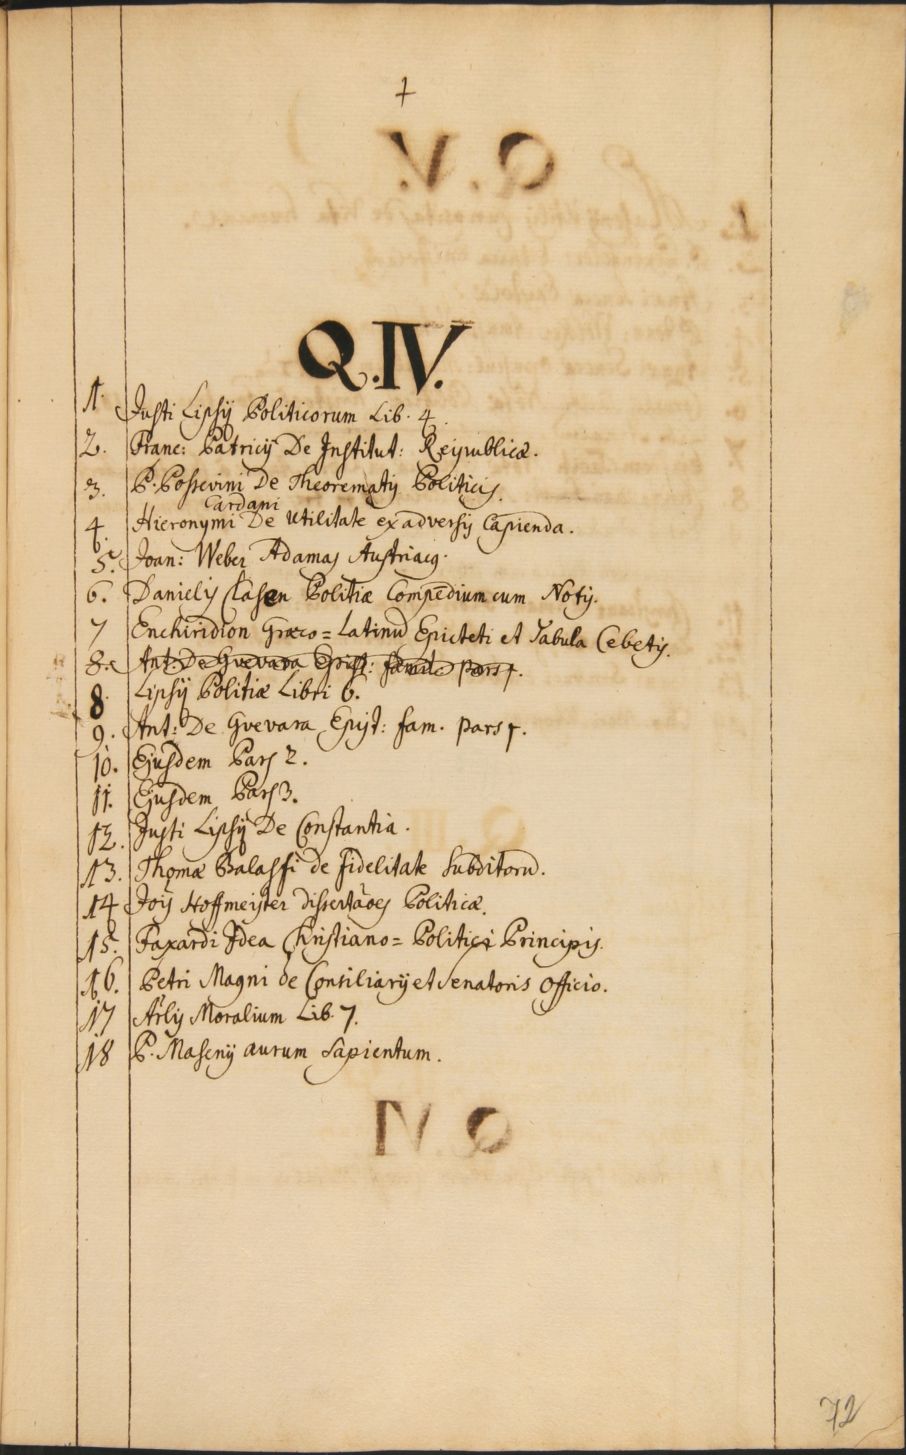 Q.IV.
1. Justi Lipsij Politicorum Lib. 4.
2. Franc: Patricij De Institut: Reipublicæ.
3. P. Possevini De Theorematis Politicis.
Cardani
4. Hieronymi De Utilitate ex adversis Capienda.
5. Joan: Weber Adamas Austriacus.
6. Danielis Clasen Politiæ Compēdium cum Notis.
7 Enchiridion Græco=Latinū Epicteti et Tabula Cebetis.
8. Ant: De Guevara Epist: famil: pars 1.
8. Lipsij Politiæ Libri 6.
9. Ant: De Gvevara Epist: fam. pars 1.
10. Ejusdem Pars 2.
11. Ejusdem Pars 3.
12. Justi Lipsij De Constantia.
13. Thomæ Balassfi de fidelitate Subditorū.
14 Jois Hoffmeister dissertãoes Politicæ.
15. Faxardi Idea Christiano=Politici Principis.
16. Petri Magni de Consiliarij et Senatoris Officio.
17 Arlis Moralium Lib. 7.
18 P. Masenij aurum Sapientum.
72